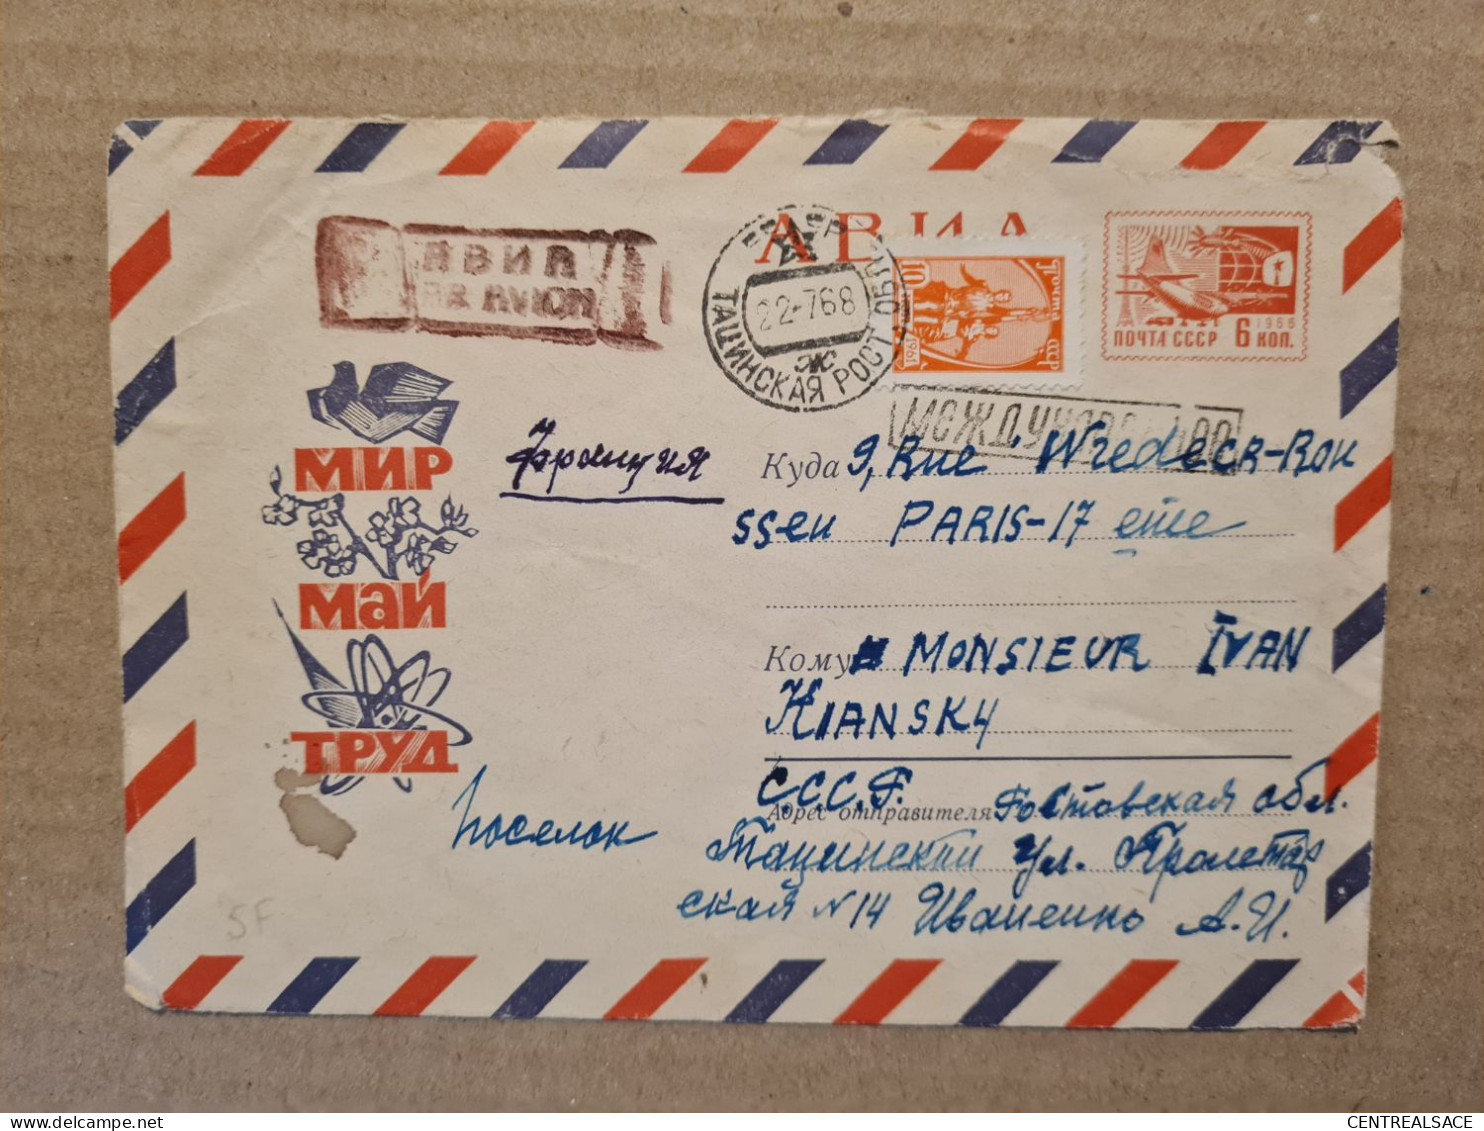 АВИА
АВИА
PAR AVION
22-768
ТАЦИНСКАЯ РОСТ. ОБЛ
10
1961
Почта
СССР
1966
ПОЧТА СССР 6 КОП.
МЕЖДУНАРОДНОЕ
МИР
МАЙ
ТРУД
Франция
Куда 9, Rue Wredecr-Rou
ssen PARIS-17 eme
Кому MONSIEUR IVAN
KIANSKY
С.С.С.Р.
Адрес отправителя Ростовская обл.
поселок Тацинский ул. Пролетар
ская № 14 Иваненко А.И.
5F
CENTREALSACE